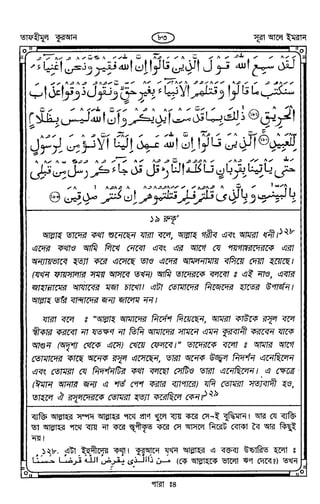 তাফহীমুল কুরআন
৮৩
সূরা আলে ইমরান
لَقَدْ سَمِعَ اللّٰهُ قَوْلَ الَّذِيْنَ قَالُوْٓا اِنَّ اللّٰهَ فَقِيْرٌ وَّنَحْنُ اَغْنِيَآءُ
سَنَكْتُبُ مَا قَالُوْا وَقَتْلَهُمُ الْاَنْۢبِيَآءَ بِغَيْرِ حَقٍّ وَّنَقُوْلُ ذُوْقُوْا عَذَابَ
الْحَرِيْقِ ذٰلِكَ بِمَا قَدَّمَتْ اَيْدِيْكُمْ وَاَنَّ اللّٰهَ لَيْسَ بِظَلَّامٍ
لِّلْعَبِيْدِ اَلَّذِيْنَ قَالُوْٓا اِنَّ اللّٰهَ عَهِدَ اِلَيْنَآ اَلَّا نُؤْمِنَ لِرَسُوْلٍ
حَتّٰى يَاْتِيَنَا بِقُرْبَانٍ تَاْكُلُهُ النَّارُ قُلْ قَدْ جَآءَكُمْ رُسُلٌ مِّنْ قَبْلِيْ
بِالْبَيِّنٰتِ وَبِالَّذِيْ قُلْتُمْ فَلِمَ قَتَلْتُمُوْهُمْ اِنْ كُنْتُمْ صٰدِقِيْنَ
১৯ রুকূ'
আল্লাহ তাদের কথা শুনেছেন যারা বলে, আল্লাহ গরীব এবং আমরা ধনী।১২৮
এদের কথাও আমি লিখে নেবো এবং এর আগে যে পয়গাম্বরদেরকে এরা
অন্যায়ভাবে হত্যা করে এসেছে তাও এদের আমলনামায় বসিয়ে দেয়া হয়েছে।
(যখন ফায়সালার সময় আসবে তখন) আমি তাদেরকে বলবো ঃ এই নাও, এবার
জাহান্নামের আযাবের মজা চাখো। এটা তোমাদের নিজেদের হাতের উপার্জন।
আল্লাহ তাঁর বান্দাদের জন্য জালেম নন।
যারা বলে ঃ "আল্লাহ আমাদের নির্দেশ দিয়েছেন, আমরা কাউকে রসূল বলে
স্বীকার করবো না যতক্ষণ না তিনি আমাদের সামনে এমন কুরবানী করবেন যাকে
আগুন (অদৃশ্য থেকে এসে) খেয়ে ফেলবে।" তাদেরকে বলো ঃ আমার আগে
তোমাদের কাছে অনেক রসূল এসেছেন, তারা অনেক উজ্জ্বল নিদর্শন এনেছিলেন
এবং তোমরা যে নিদর্শনটির কথা বলছো সেটিও তারা এনেছিলেন। এ ক্ষেত্রে
(ঈমান আনার জন্য এ শর্ত পেশ করার ব্যাপারে) যদি তোমরা সত্যবাদী হও,
তাহলে ঐ রসূলদেরকে তোমরা হত্যা করেছিলে কেন?১২৯
ব্যক্তি আল্লাহর সম্পদ আল্লাহর পথে প্রাণ খুলে ব্যয় করে সে–ই বুদ্ধিমান। আর যে ব্যক্তি
তা আল্লাহর পথে ব্যয় না করে স্তূপীকৃত করে সে আসলে নিরেট বোকা বৈ আর কিছুই
নয়।
১২৮. এটা ইহুদীদের কথা। কুরআনে যখন আল্লাহর এ বক্তব্য উচ্চারিত হলো ঃ
من ذا الذي يقرض الله قرضا حسنا (কে আল্লাহকে ভালো ঋণ দেবে?) তখন
পারা ঃ৪